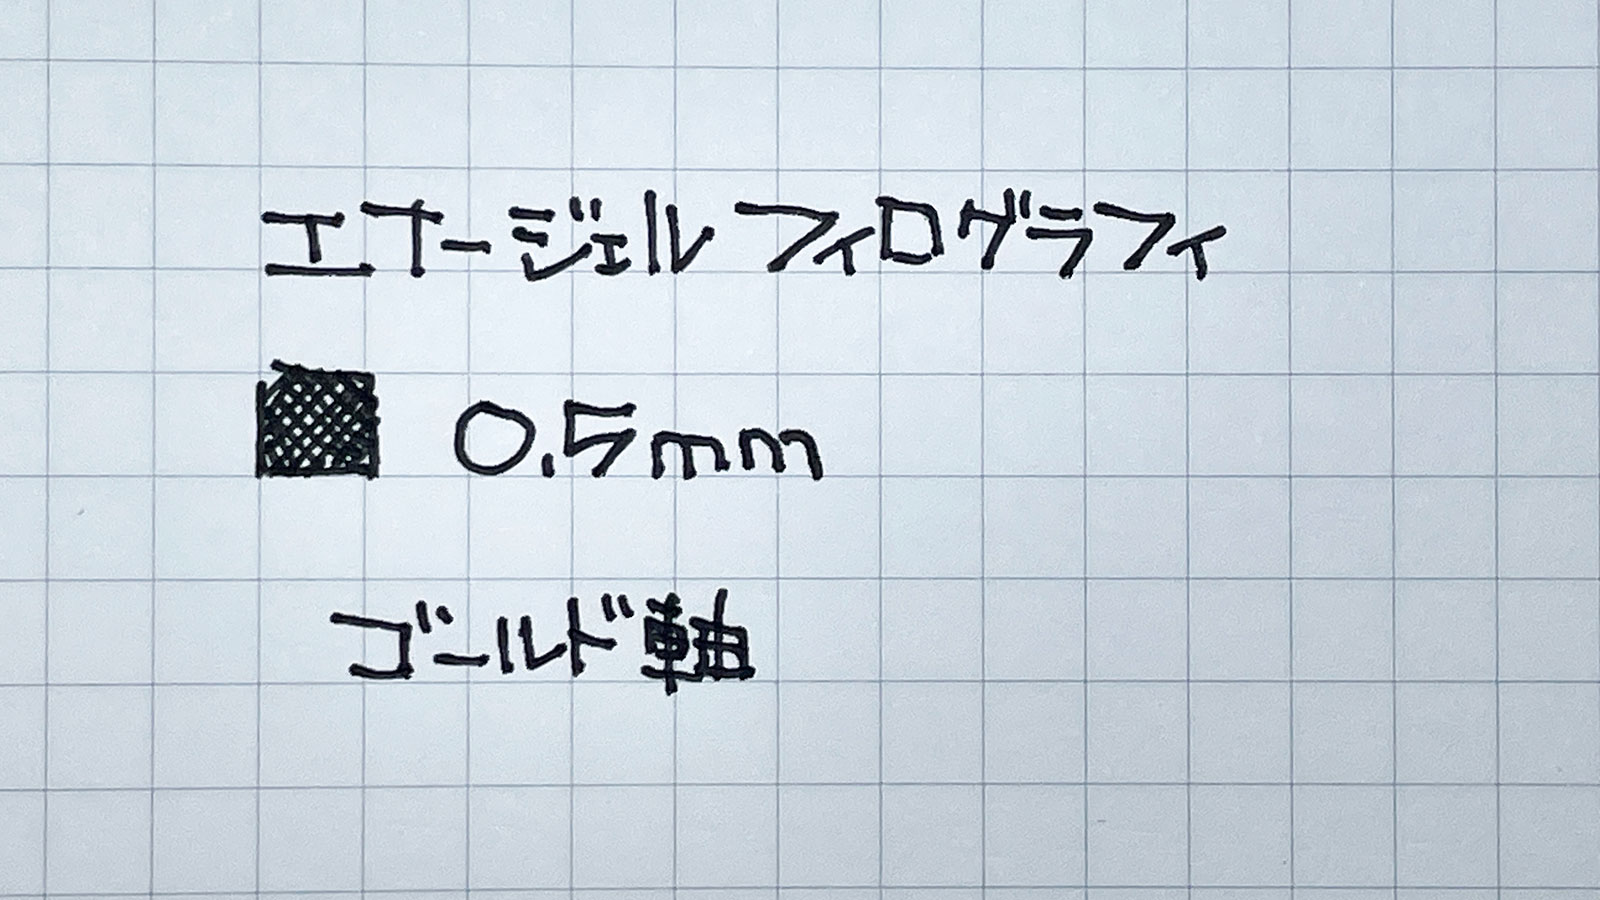 エナージェル フィログラフィ
0.5mm
ゴールド軸